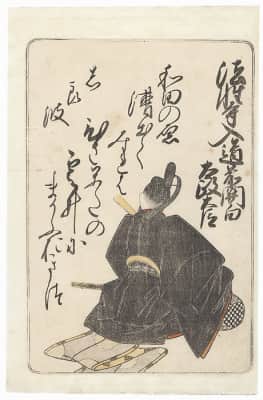 法性寺入道前関白
太政大臣
和田の原
漕出て
見れは
ひさかたの
雲井に
まかふおきつ
志
ら波